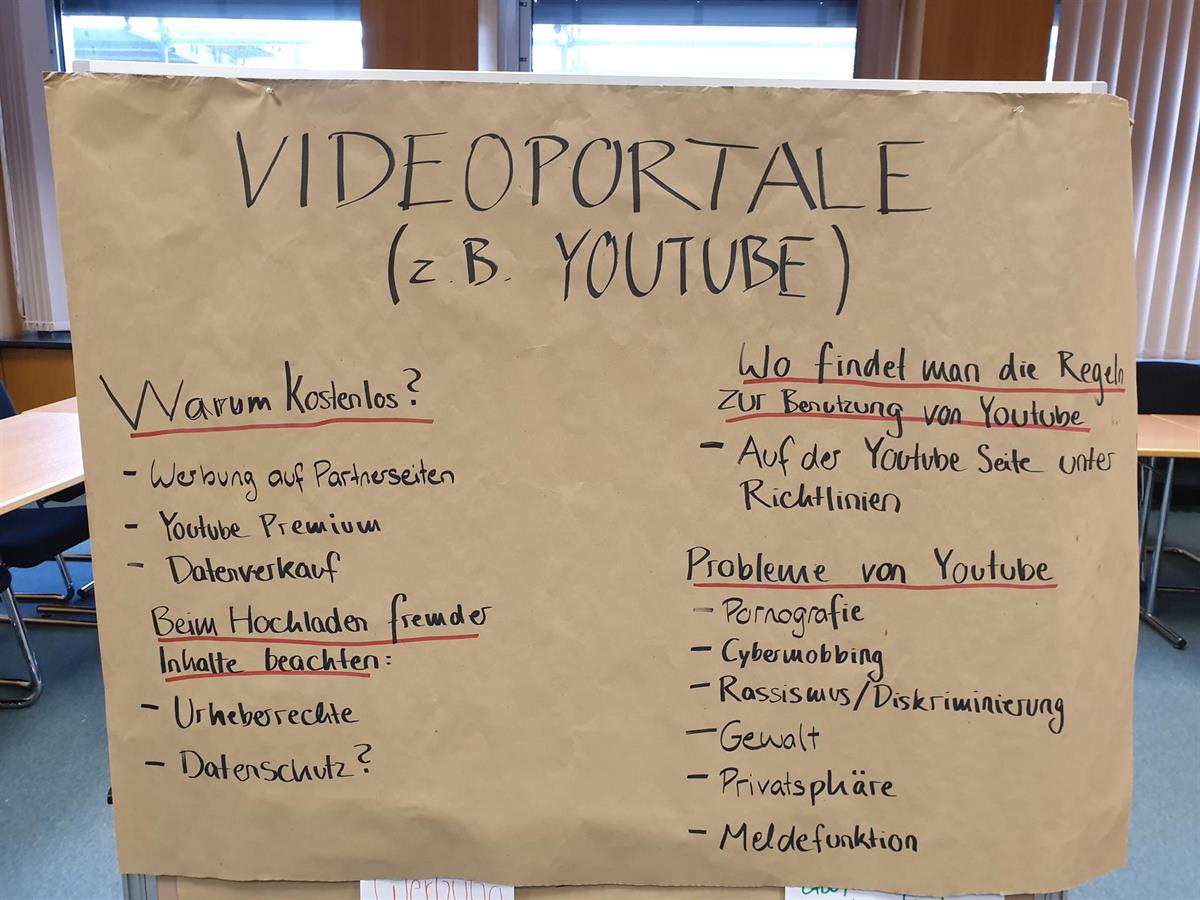 VIDEOPORTALE
(z.B. YOUTUBE)
Warum Kostenlos?
- Werbung auf Partnerseiten
- Youtube Premium
- Datenverkauf
Beim Hochladen fremder
Inhalte beachten:
- Urheberrechte
- Datenschutz?
Wo findet man die Regeln
zur Benutzung von Youtube
- Auf der Youtube Seite unter
Richtlinien
Probleme von Youtube
- Pornografie
- Cybermobbing
- Rassismus/Diskriminierung
- Gewalt
- Privatsphäre
- Meldefunktion
Werbung